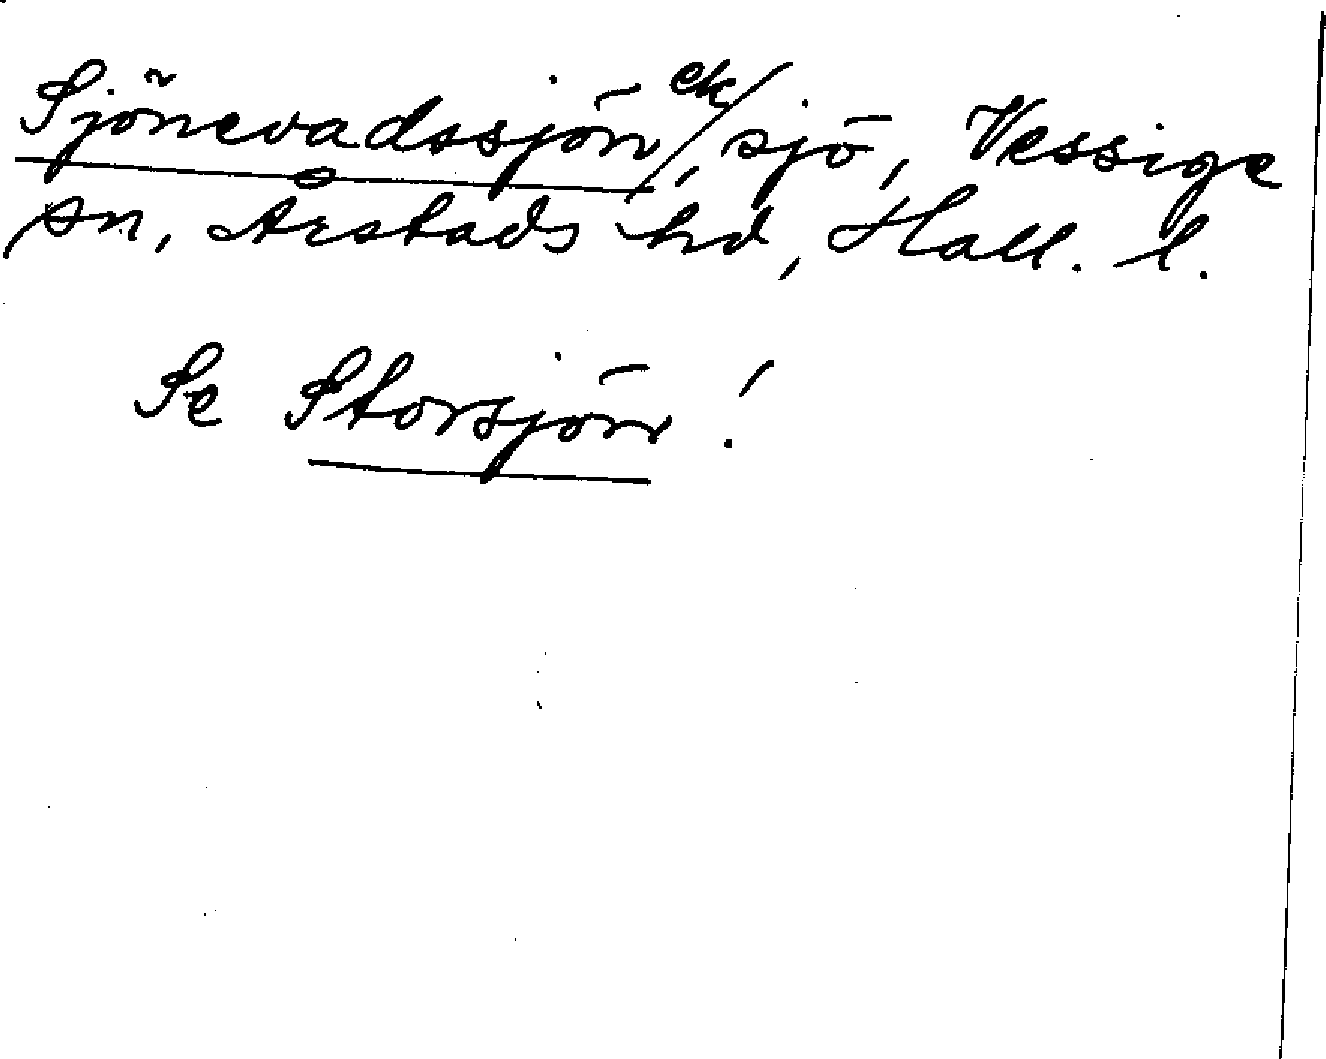 Sjönevadssjön ek/, sjö, Vessige
sn, Årstads hd, Hall. l.
Se Storsjön!